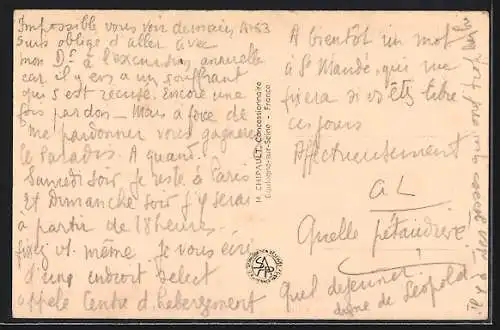 Impossible vous voir demain,
suis obligé d'aller avec
mon Dr à l'excursion annuelle
car il y en a un souffrant
qui s'est récusé. Encore une
fois pardon — Mais à force de
me pardonner vous gagnerez
le Paradis. A quand.
Samedi soir je reste à Paris
et Dimanche soir j'y serai
à partir de 18 heures.
fixez vs même. Je vous écris
d'un endroit select
appelé Centre d'hébergement
H. CHIPAULT, Concessionnaire
Boulogne-sur-Seine - France
A bientôt un mot
à St Mandé, qui me
fixera si vs êtes libre
ces jours
Affectueusement
Quelle pétaudière
Quel déjeuner
digne de Leopold